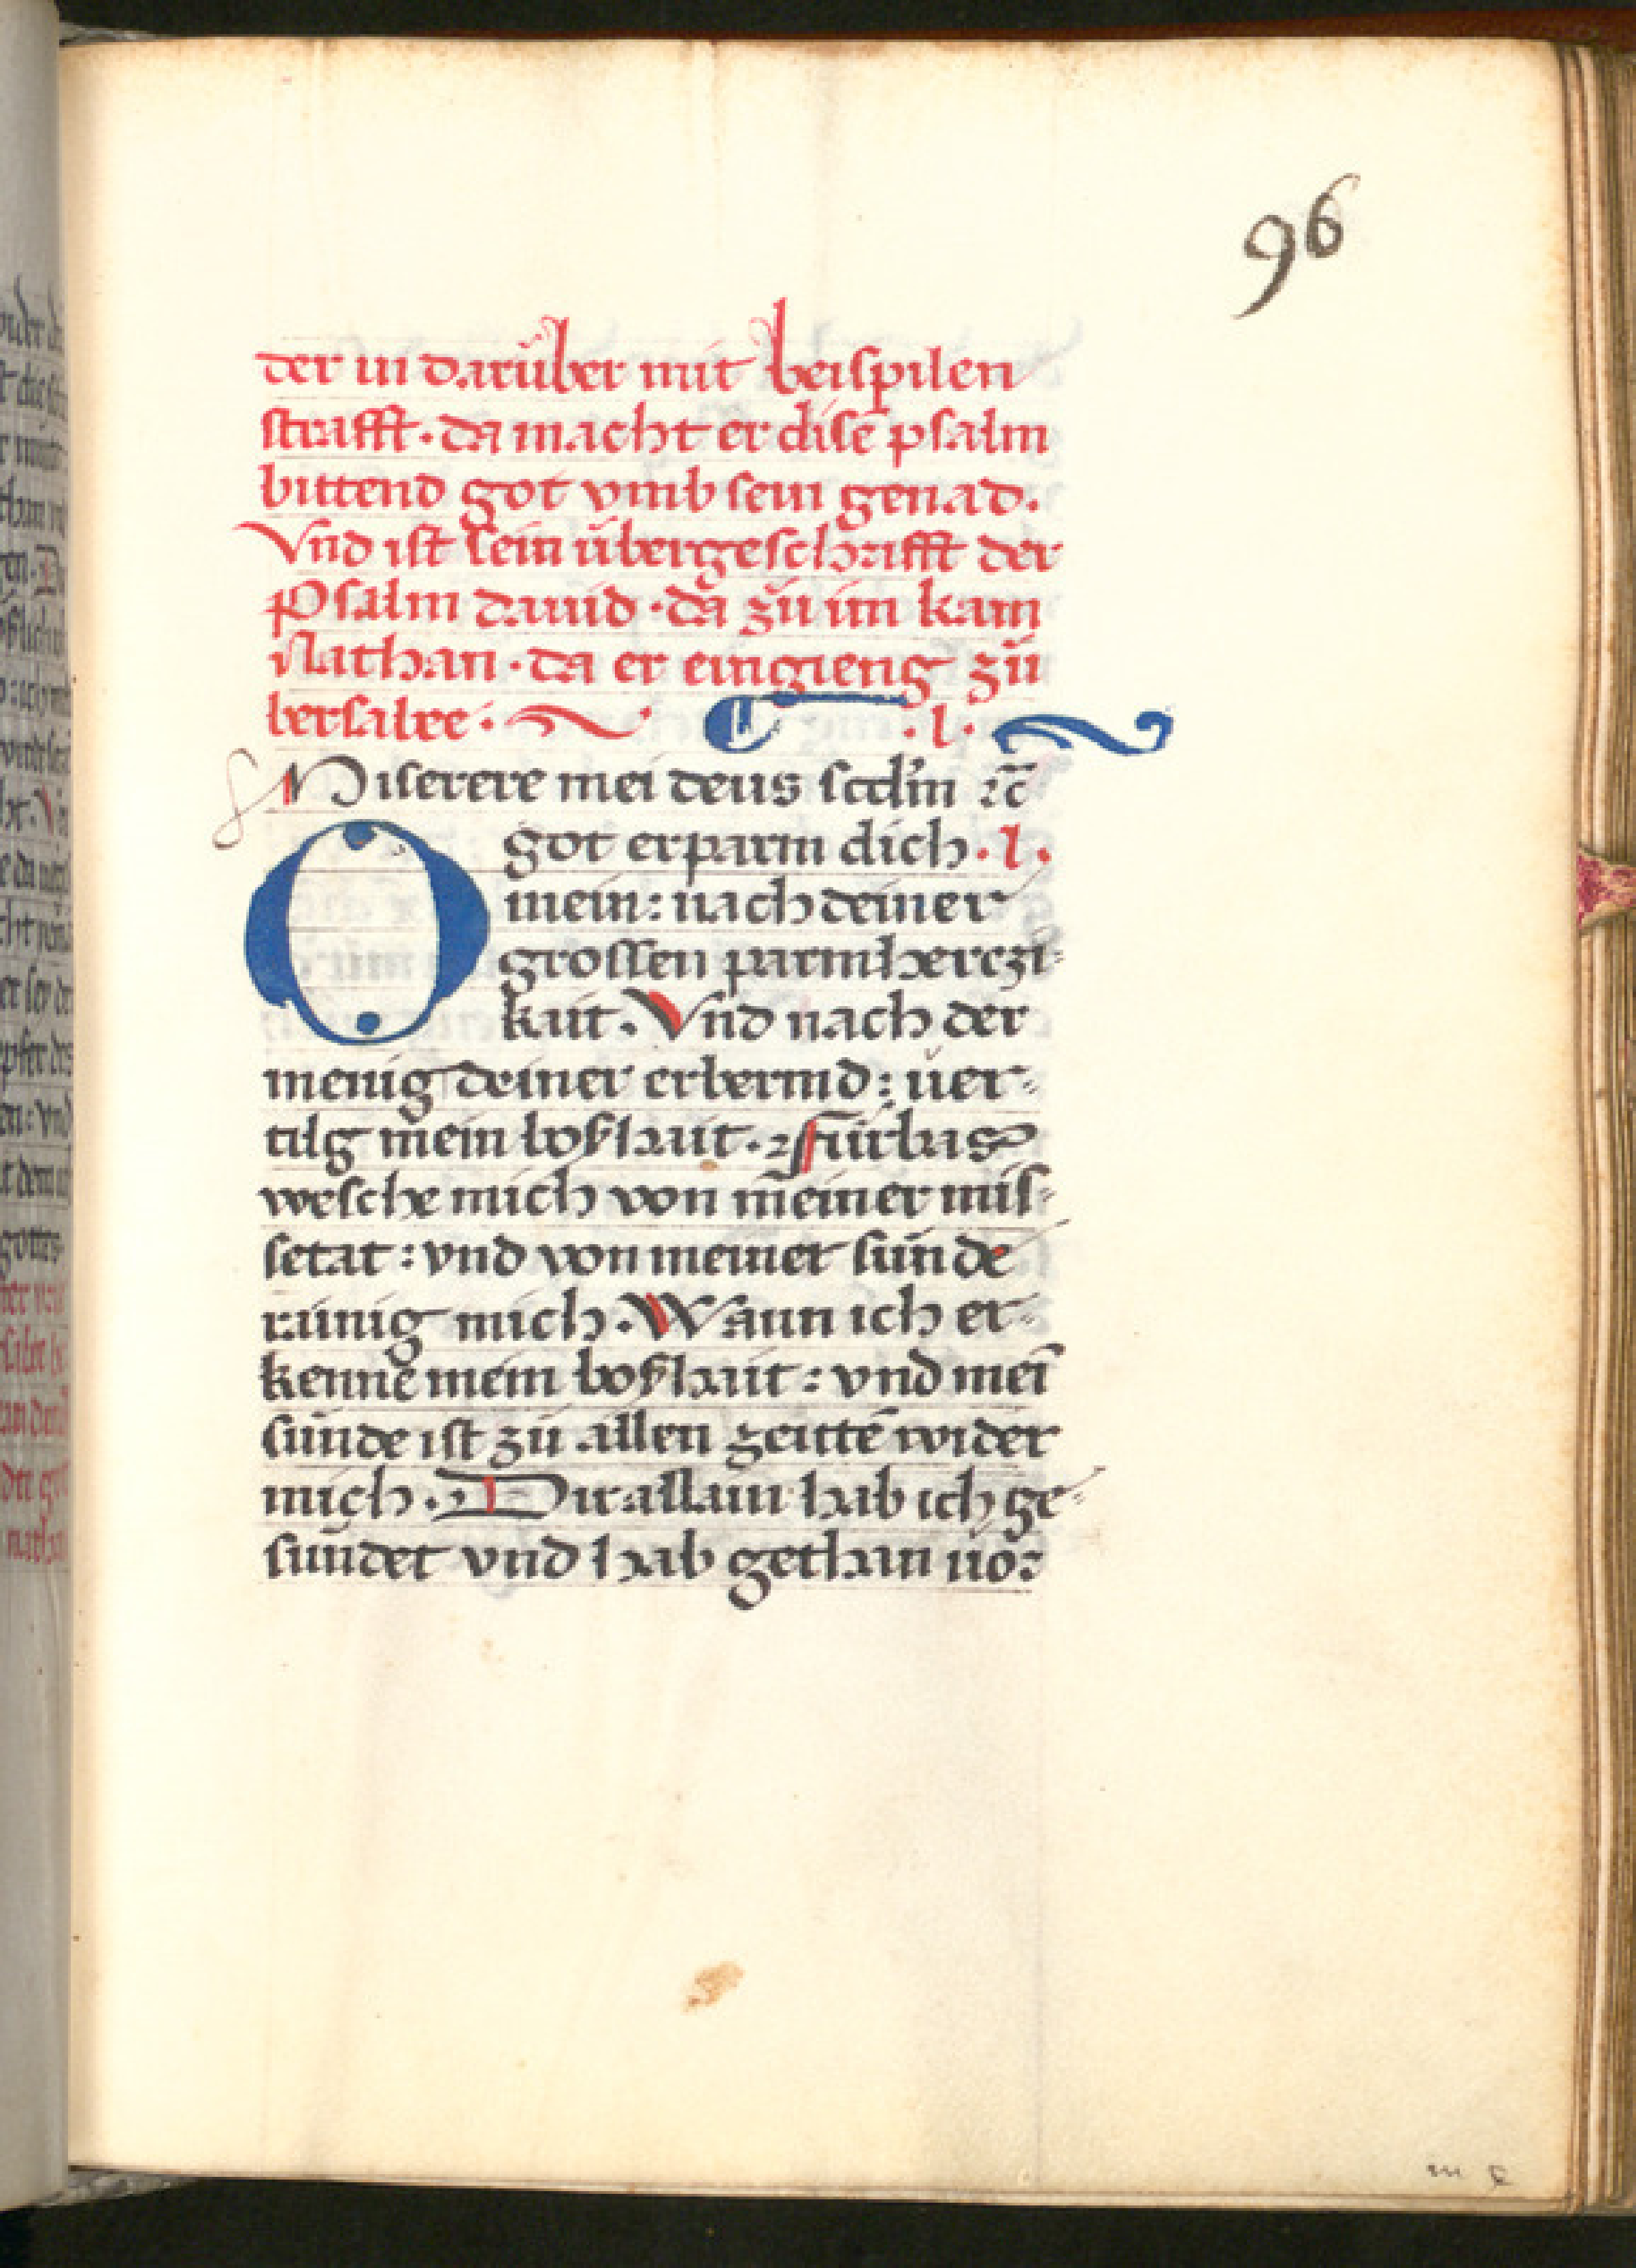 96
der in darüber mit beispilen
strafft · da macht er disē psalm
bittend got vmb sein genad.
Vnd ist sein übergeschrifft der
Psalm dauid · da zů im kam
Nathan · da er eingieng zů
bersabee · .l.
Miserere mei deus scd'm ⁊c̄
O got erparm dich .l.
mein : nach deiner
grossen parmherczi-
kait. Vnd nach der
menig deiner erbermd : üer-
tilg mein boßhait. Fürbas
wesche mich von meiner mis-
setat : vnd von meiner sünde
rainig mich. Wann ich er-
kenne mein boßhait : vnd mei͂
sünde ist zů allen zeittē wider
mich. Dir allain hab ich ge-
sündet vnd hab gethan uor